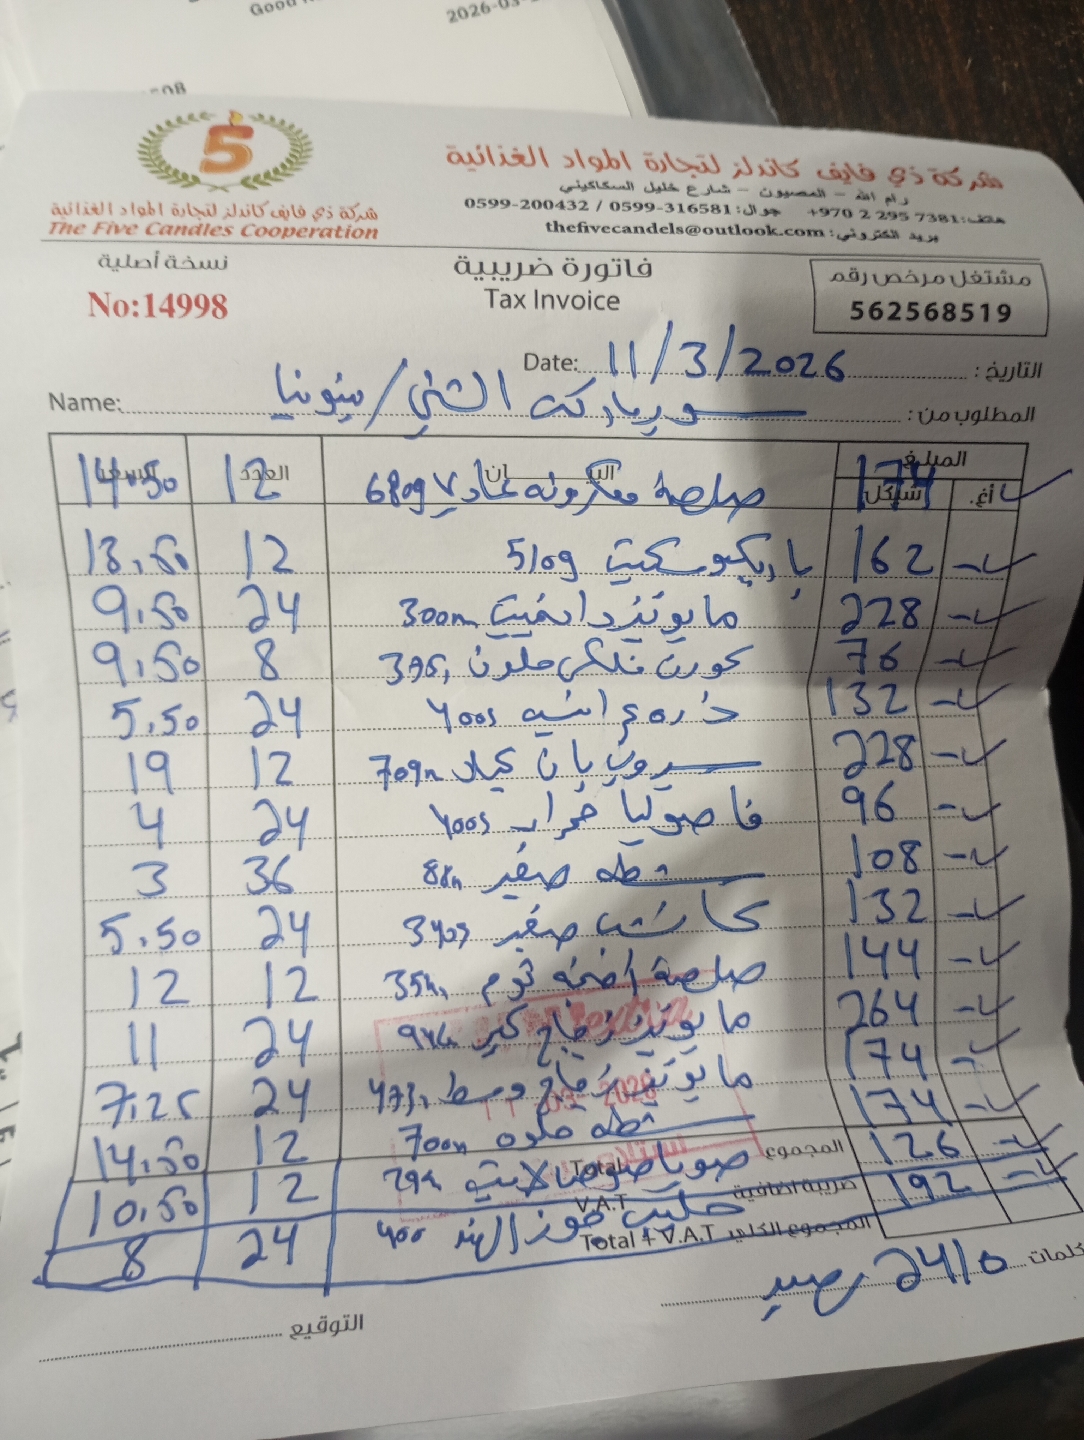 Good
2026-03-
5
شركة ذي فايف كاندلز لتجارة المواد الغذائية
The Five Candles Cooperation
شركة ذي فايف كاندلز لتجارة المواد الغذائية
رام الله - المصيون - شارع خليل السكاكيني
هاتف: +970 2 295 7381 جوال: 0599-316581 / 0599-200432
بريد الكتروني: thefivecandels@outlook.com
نسخة أصلية
No:14998
فاتورة ضريبية
Tax Invoice
مشتغل مرخص رقم
562568519
التاريخ: Date: 11/3/2026
المطلوب من: سوبرماركت الشني / بيتونيا Name:
المبلغ البيــــان العدد السعر
أغ. شيكل
174 صلصة معكرونه عادي 680g 12 14.50
162 باربكيو سكيت 510g 12 13.50
228 مايونيز دايت 300m 24 9.50
76 كورن فلكس ملون 375 8 9.50
132 ذره 400g 24 5.50
228 سيروب بان كيك 709m 12 19
96 فاصوليا حمراء 400g 24 4
108 شطه صغير 88m 36 3
132 كاتشب صغير 340g 24 5.50
144 صلصة ثوم 354 12 12
264 مايونيز زجاج كبير 946 24 11
174 مايونيز زجاج وسط 473 24 7.25
174 شطه حلوه 700m 12 14.50
126 صويا صوص لايت 294 12 10.50
192 حليب جوز الهند 400 24 8
المجموع Total
ضريبة اضافية V.A.T
المجموع الكلي Total + V.A.T
2026
كلمات 2410
التوقيع